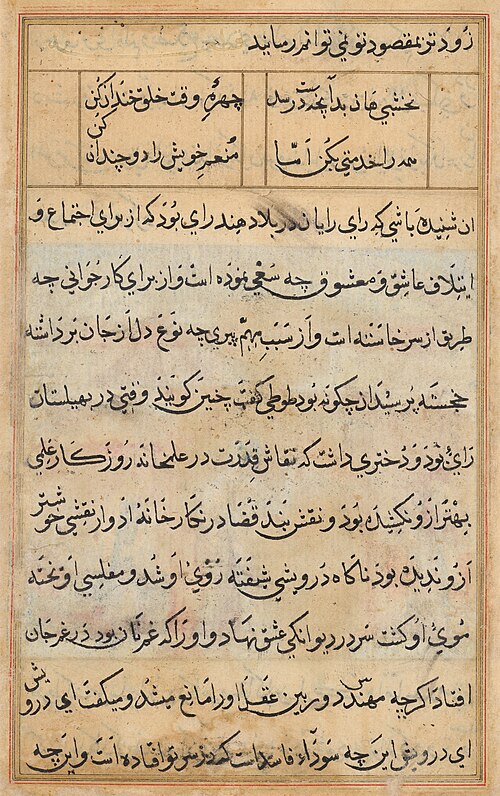 زودتر بمقصود تو نمی توانم رسانید
نخشبی هان بدانچه دست رسد
چهرهٔ وقت خلق خندان کن
همه را خدمتی بکن اما
منعم خویش را دو چندان کن
ان شنیده باشی که رای رایان در بلاد هند رای بود که از برای اجتماع و
ایتلاف عاشق و معشوق چه سعی نموده است و از برای کار جوانی چه
طریق از سر خاسته است و از سبب مهم پیری چه نوع دل از جان برداشته
خجسته پرسید از چکونه بود طوطی کفت چنین کویند وقتی در بهیلستان
رای بود و دختری داشت که نقاش قدرت در علمخانه روزکار علمی
بهتر ازو نکشیده بود و نقش بند قضا در نکارخانه ادوار نقشی خوشتر
ازو ندیده بود ناکاه درویشی شیفته روی او شد و مفلسی اوپخته
موی او کشت سر در دیوانکی عشق نهاد و او را که غم نان بود در غم جان
افتاد اکرچه مهندس دوربین عقل او را مانع میشد و میکفت ای درویش
ای درویش این چه سوداء فاسد است که در سر تو افتاده است و این چه